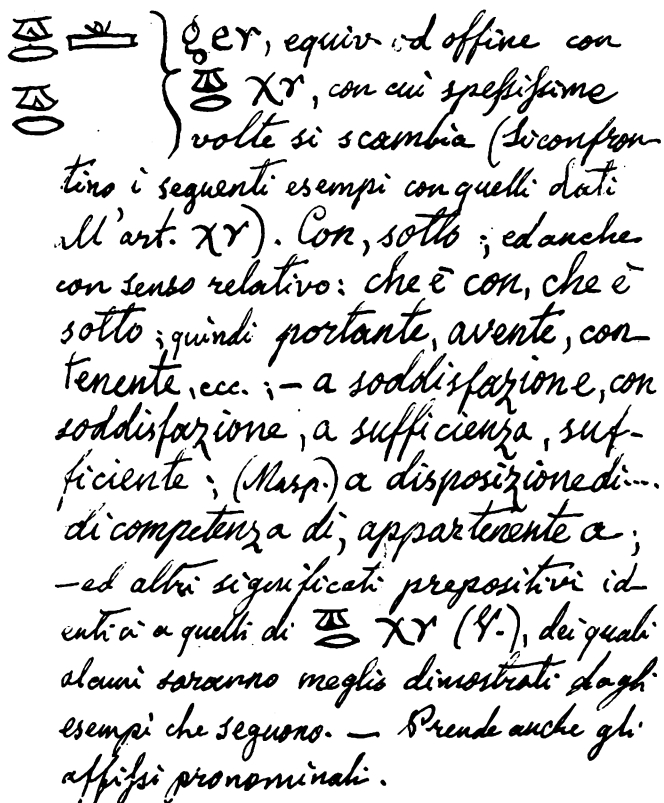 𓎼𓂋𓂝 } g̣er, equiv. ed affine con
𓎼𓂋 } 𓎼𓂋 χr, con cui spessissime
volte si scambia (Si confron-
tino i seguenti esempi con quelli dati
all'art. χr). Con, sotto; ed anche
con senso relativo: che è con, che è
sotto; quindi portante, avente, con-
tenente, ecc.; — a soddisfazione, con
soddisfazione, a sufficienza, suf-
ficiente; (Masp.) a disposizione di....
di competenza di, appartenente a;
— ed altri significati prepositivi id-
entici a quelli di 𓎼𓂋 χr (V.), dei quali
alcuni saranno meglio dimostrati dagli
esempi che seguono. — Prende anche gli
affissi pronominali.